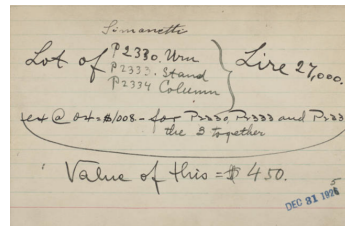 Simonetti
Lot of P2330. Urn
P2333. Stand
P2334 Column
Lire 27,000.
for P2330, P2333 and
the 3 together
Value of this = $450.
DEC 31 192
5